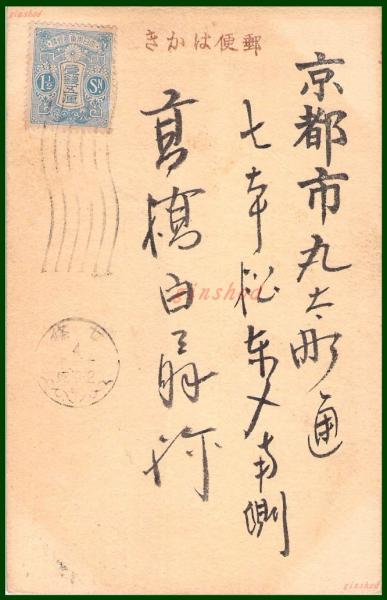 郵便はかき
京都市丸太町通
七本松東入南側
高橋白扇様
1½ SN
ginshod
ginshod
ginshod